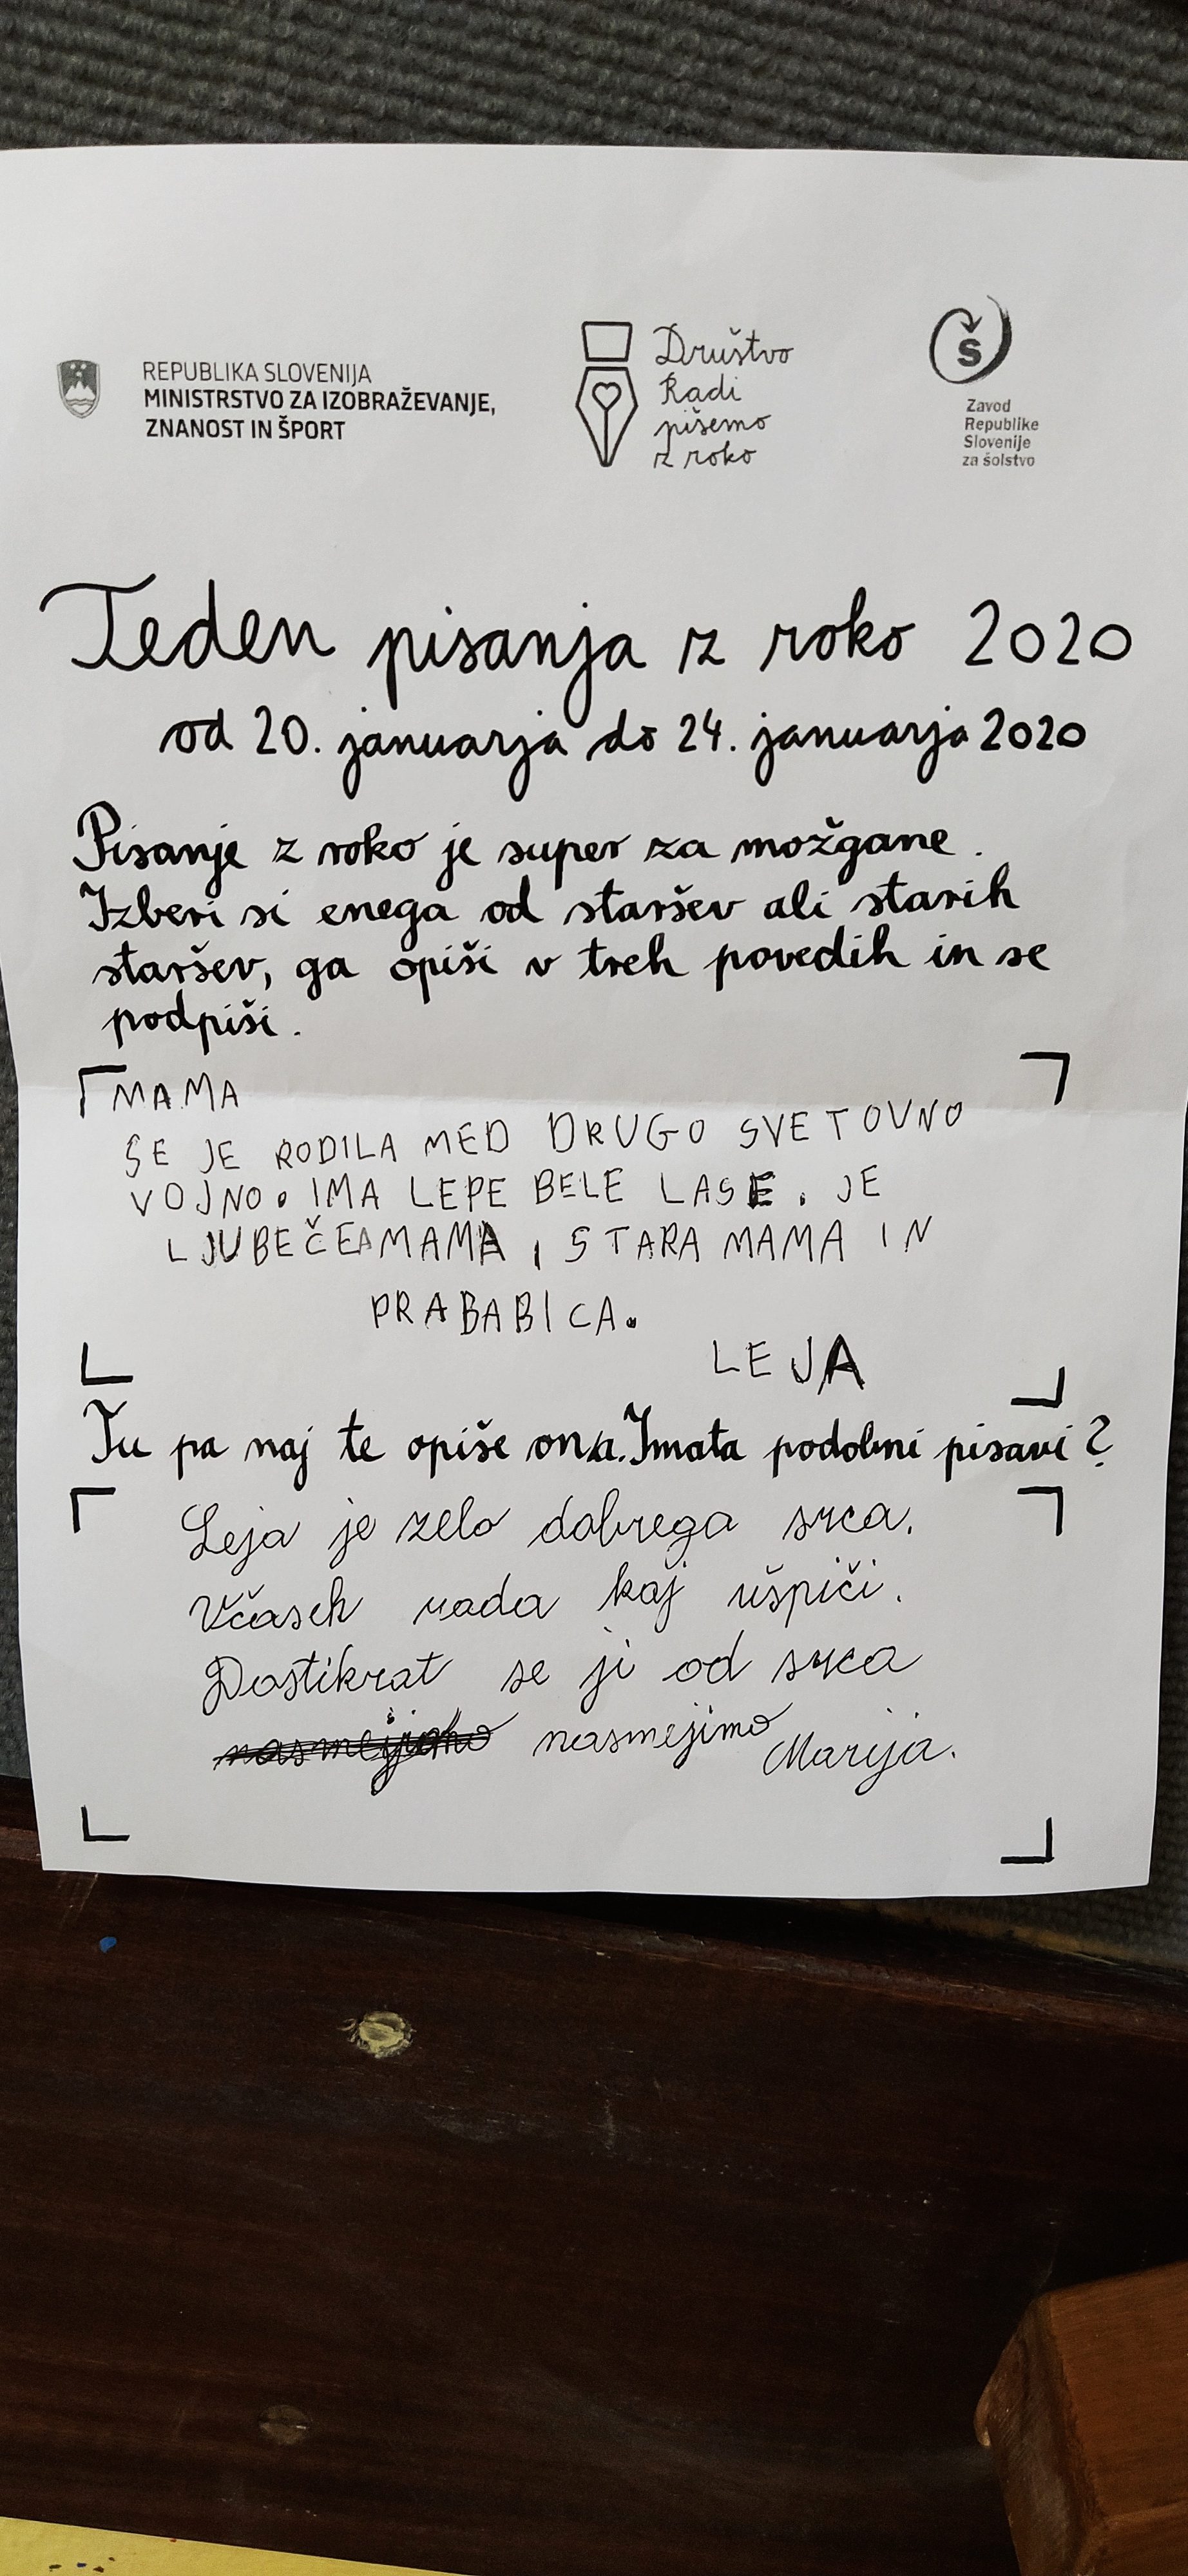 REPUBLIKA SLOVENIJA
MINISTRSTVO ZA IZOBRAŽEVANJE,
ZNANOST IN ŠPORT
Društvo
Radi
pišemo
z roko
Š
Zavod
Republike
Slovenije
za šolstvo
Teden pisanja z roko 2020
od 20. januarja do 24. januarja 2020
Pisanje z roko je super za možgane.
Izberi si enega od staršev ali starih
staršev, ga opiši v treh povedih in se
podpiši.
MAMA
SE JE RODILA MED DRUGO SVETOVNO
VOJNO. IMA LEPE BELE LASE. JE
LJUBEČEA MAMA, STARA MAMA IN
PRABABICA.
LEJA
Tu pa naj te opiše on/a. Imata podobni pisavi?
Leja je zelo dobrega srca.
Včaseh rada kaj ušpiči.
Dostikrat se ji od srca
nasmejimo
Marija.